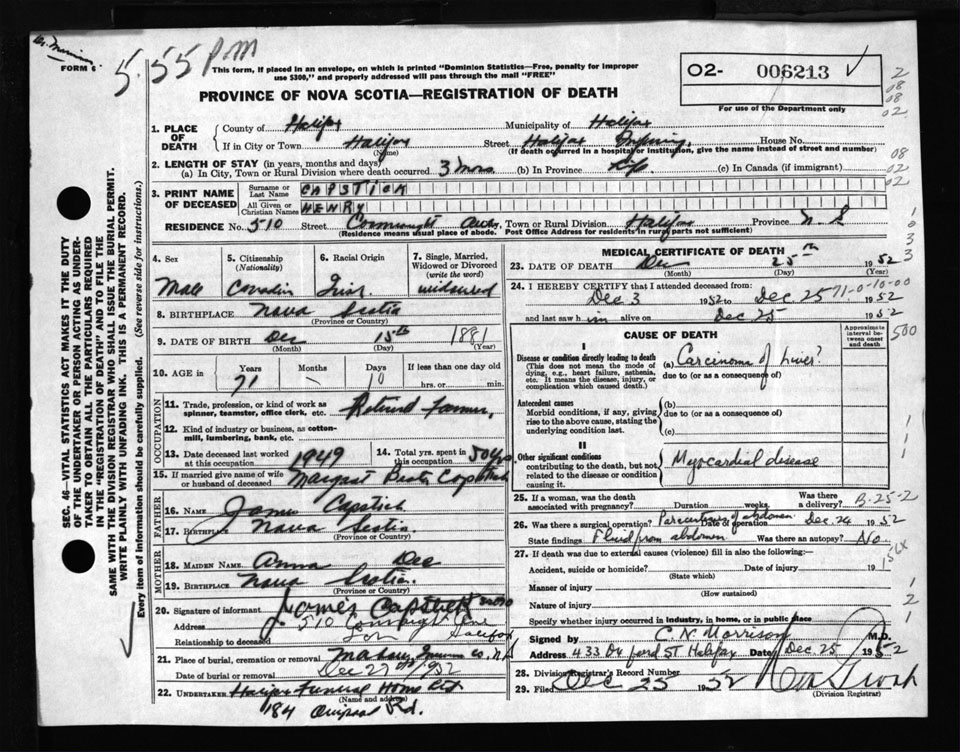 FORM 6
5.55 PM
This form, if placed in an envelope, on which is printed "Dominion Statistics—Free, penalty for improper
use $300," and properly addressed will pass through the mail "FREE"
O2- 006213
For use of the Department only
PROVINCE OF NOVA SCOTIA—REGISTRATION OF DEATH
SEC. 46—VITAL STATISTICS ACT MAKES IT THE DUTY
OF THE UNDERTAKER OR PERSON ACTING AS UNDER-
TAKER TO OBTAIN ALL THE PARTICULARS REQUIRED
IN THE "REGISTRATION OF DEATH" AND TO FILE THE
SAME WITH THE DIVISION REGISTRAR WHO SHALL ISSUE THE BURIAL PERMIT.
WRITE PLAINLY WITH UNFADING INK. THIS IS A PERMANENT RECORD.
Every item of information should be carefully supplied. (See reverse side for instructions.)
1. PLACE OF DEATH
County of Halifax Municipality of Halifax
If in City or Town Halifax Street Halifax House No.
(Name) (If death occurred in a hospital or institution, give the name instead of street and number)
2. LENGTH OF STAY (in years, months and days)
(a) In City, Town or Rural Division where death occurred 3 mos (b) In Province Life (c) In Canada (if immigrant)
3. PRINT NAME OF DECEASED
Surname or Last Name CAPSTICK
All Given or Christian Names HENRY
RESIDENCE No. 510 Street Connaught Ave, Town or Rural Division Halifax Province N S
(Residence means usual place of abode. Post Office Address for residents in rural parts not sufficient)
4. Sex
Male
5. Citizenship (Nationality)
Canadian
6. Racial Origin
7. Single, Married, Widowed or Divorced (write the word)
widowed
8. BIRTHPLACE Nova Scotia
(Province or Country)
9. DATE OF BIRTH Dec 15th 1881
(Month) (Day) (Year)
10. AGE in Years Months Days If less than one day old
71 - 10 hrs. or min.
OCCUPATION
11. Trade, profession, or kind of work as spinner, teamster, office clerk, etc. Retired Farmer
12. Kind of industry or business, as cotton-mill, lumbering, bank, etc.
13. Date deceased last worked at this occupation 1949
14. Total yrs. spent in this occupation 50 yrs
15. If married give name of wife or husband of deceased Margaret Capstick
FATHER
16. Name James Capstick
17. Birthplace Nova Scotia
(Province or Country)
MOTHER
18. MAIDEN NAME Anna Dee
19. BIRTHPLACE Nova Scotia
(Province or Country)
20. Signature of informant James Capstick
Address 510 Connaught Ave Halifax
Relationship to deceased Son
21. Place of burial, cremation or removal Mabou, Inverness Co. N.S
Date of burial or removal Dec 27th 1952
22. UNDERTAKER Halifax Funeral Home Ltd
(Name and address)
184 Rd.
MEDICAL CERTIFICATE OF DEATH
23. DATE OF DEATH Dec 25th 1952
(Month) (Day) (Year)
24. I HEREBY CERTIFY that I attended deceased from:
Dec 3 1952 to Dec 25 1952
71-0-10-00
and last saw him alive on Dec 25 1952
CAUSE OF DEATH
Approximate interval between onset and death
500
I
Disease or condition directly leading to death
(This does not mean the mode of dying, e.g., heart failure, asthenia, etc. It means the disease, injury, or complication which caused death.)
(a) Carcinoma of Liver?
due to (or as a consequence of)
Antecedent causes
Morbid conditions, if any, giving rise to the above cause, stating the underlying condition last.
(b)
due to (or as a consequence of)
(c)
II
Other significant conditions
contributing to the death, but not related to the disease or condition causing it.
Myocardial disease
25. If a woman, was the death associated with pregnancy? Duration weeks. Was there a delivery?
B-25-2
26. Was there a surgical operation? Paracentesis of abdomen Date of operation Dec 24 1952
State findings Fluid from abdomen Was there an autopsy? No
27. If death was due to external causes (violence) fill in also the following:—
Accident, suicide or homicide? Date of injury 19
(State which)
Manner of injury
(How sustained)
Nature of injury
Specify whether injury occurred in industry, in home, or in public place
Signed by C. N. Morrison M.D.
Address 433 St Halifax Date Dec 25 1952
28. Division Registrar's Record Number
29. Filed Dec 25 1952
(Division Registrar)